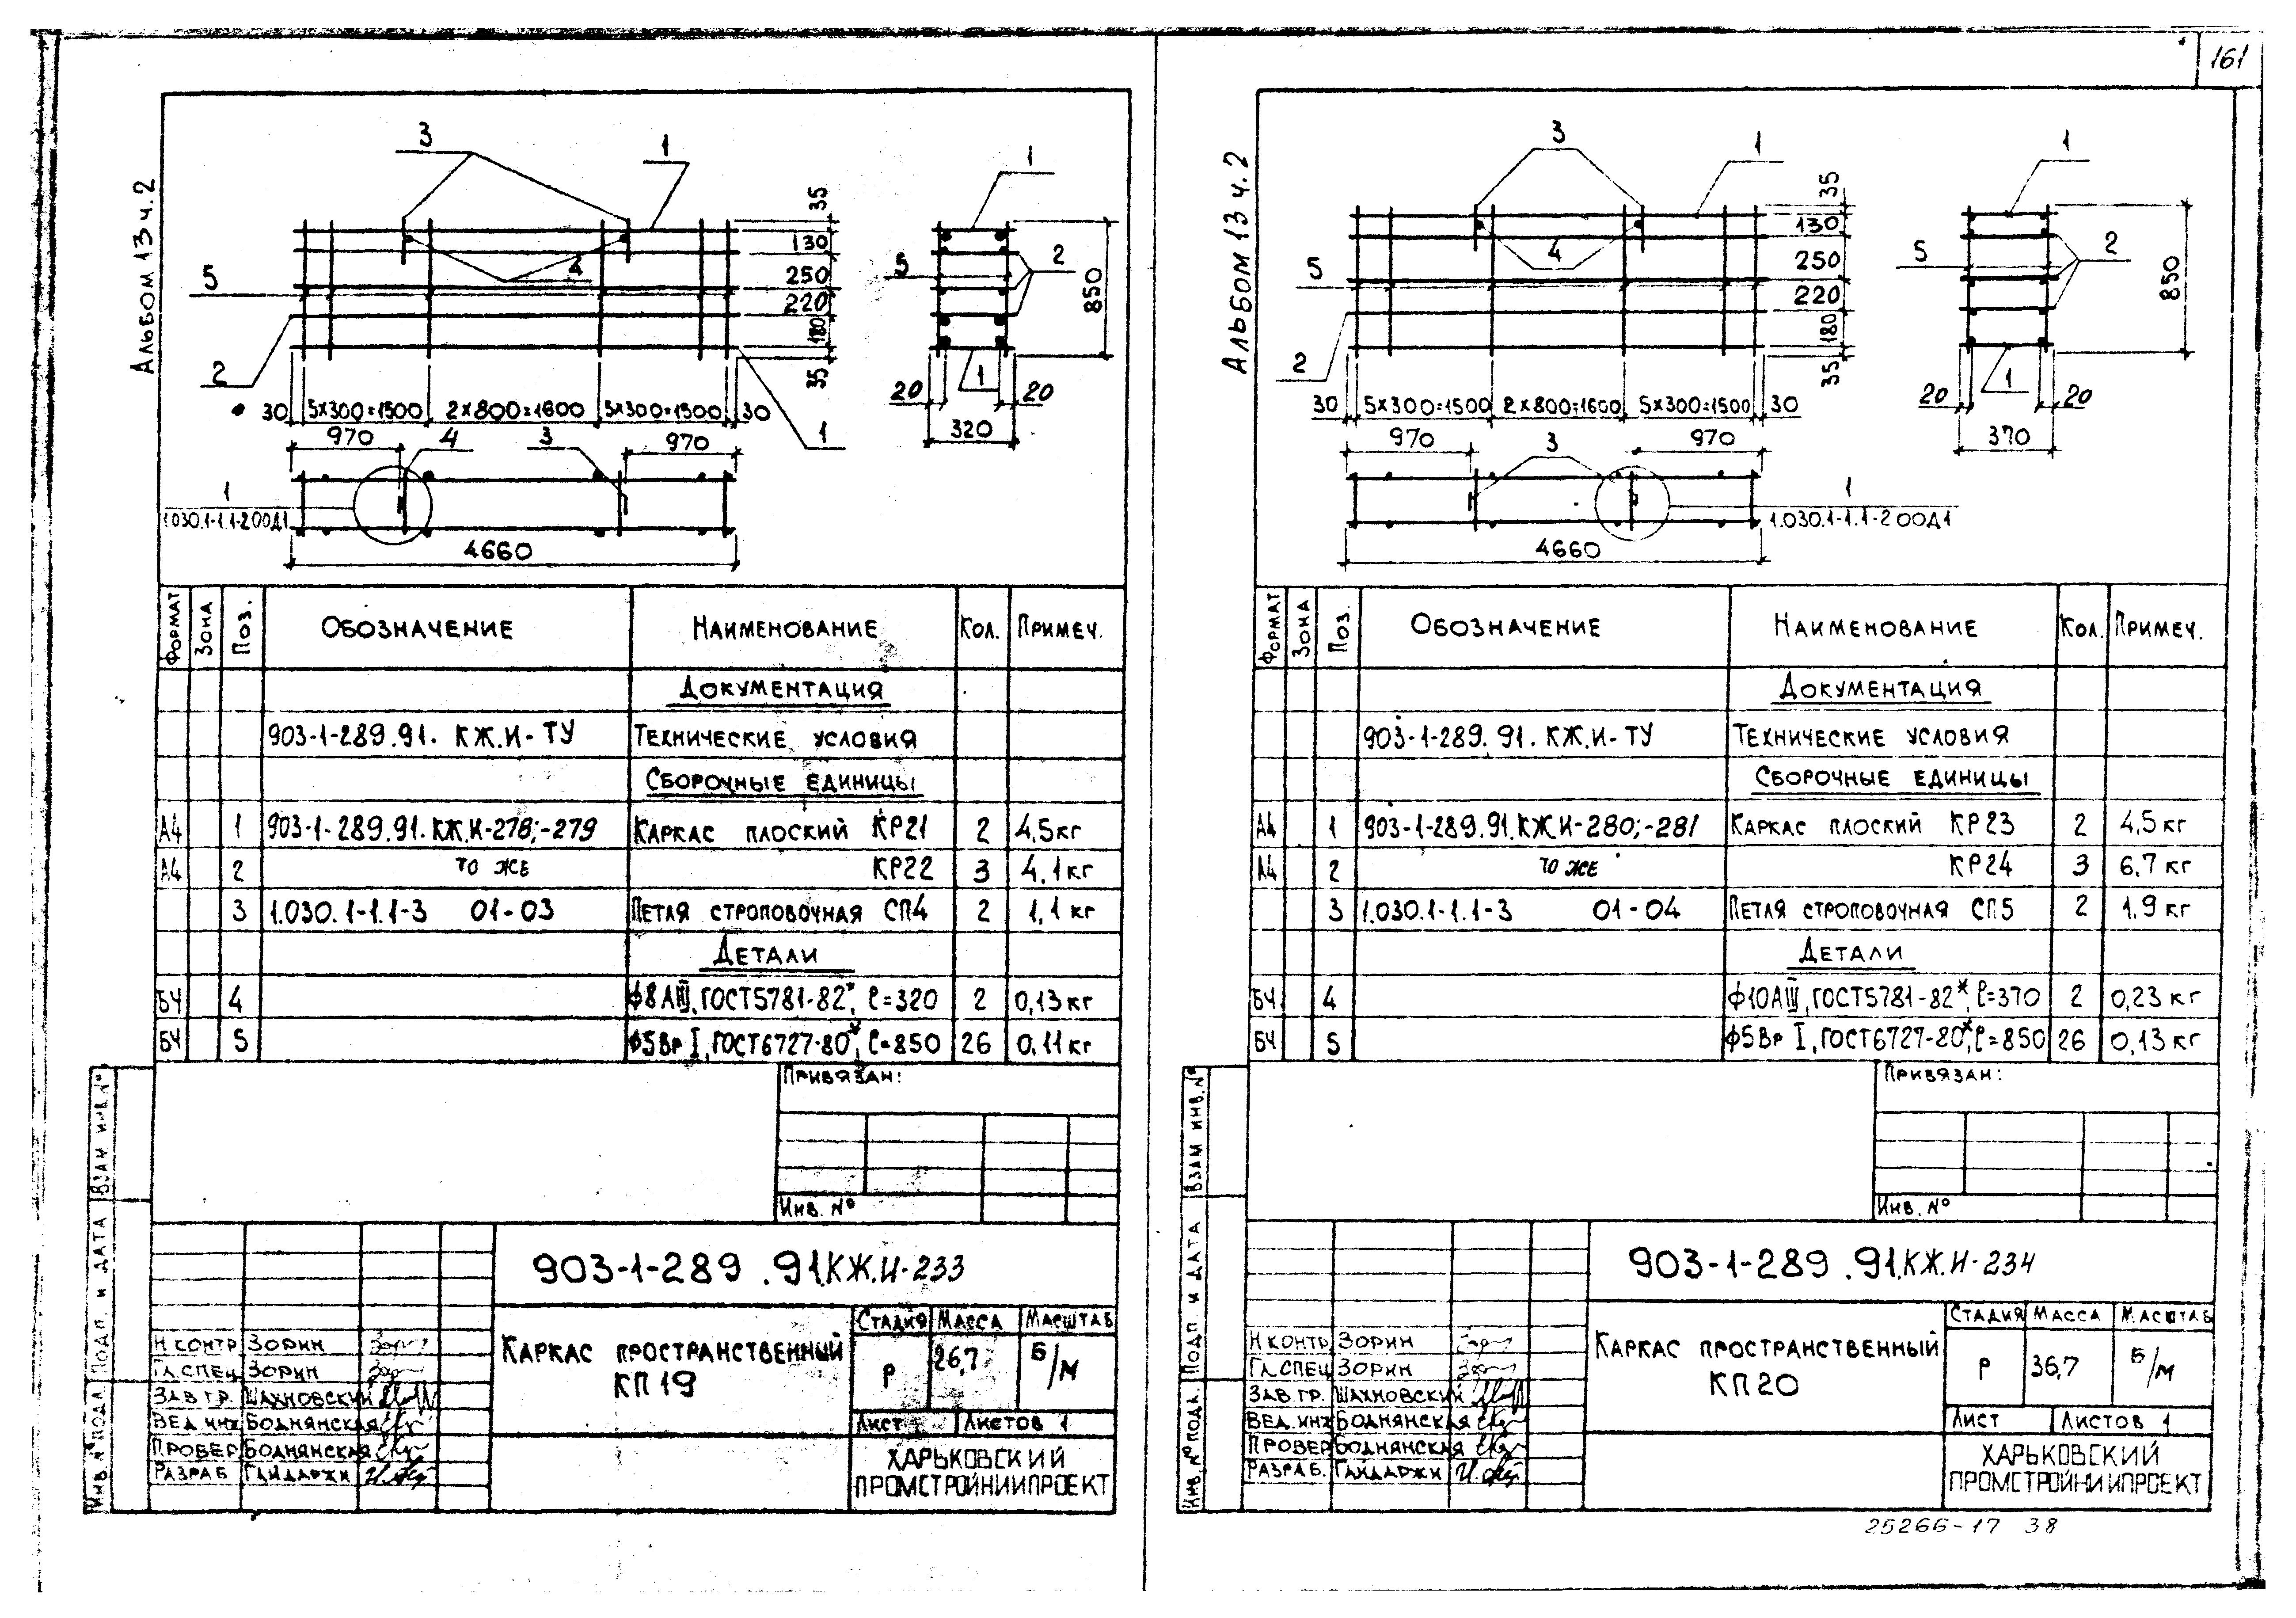 161
Альбом 13 ч.2
3
1
35
130
250
220
180
35
5
4
2
30
5×300=1500
2×800=1600
5×300=1500
30
1
970
4
3
970
1
1.030.1-1.1-2 00Д1
4660
1
5
2
850
1
20
20
320
Формат
Зона
Поз.
Обозначение
Наименование
Кол.
Примеч.
Документация
903-1-289.91. КЖ.И-ТУ Технические условия
Сборочные единицы
А4 1 903-1-289.91.КЖ.И-278;-279 Каркас плоский КР21 2 4,5кг
А4 2 то же КР22 3 4.1кг
3 1.030.1-1.1-3 01-03 Петля строповочная СП4 2 1,1 кг
Детали
БЧ 4 ф8АIII, ГОСТ5781-82*, ℓ=320 2 0,13кг
БЧ 5 ф5Вр I, ГОСТ6727-80*, ℓ=850 26 0,11кг
Привязан:
Инв. №
Взам инв.№
Подп. и дата
Инв.№подл
903-1-289.91.КЖ.И-233
Каркас пространственный
КП19
Стадия Масса Масштаб
Р 26,7 Б/м
Лист Листов 1
Харьковский
Промстройниипроект
Н контр Зорин
Гл.спец Зорин
Зав гр. Шахновский
Вед.инж Боднянская
Провер Боднянская
Разраб Гайдаржи
Альбом 13 ч.2
3
1
35
130
250
220
180
35
5
4
2
30
5×300=1500
2×800=1600
5×300=1500
30
970
3
970
1
1.030.1-1.1-2 00Д1
4660
1
5
2
850
1
20
20
370
Формат
Зона
Поз.
Обозначение
Наименование
Кол.
Примеч.
Документация
903-1-289.91. КЖ.И-ТУ Технические условия
Сборочные единицы
А4 1 903-1-289.91.КЖ.И-280;-281 Каркас плоский КР23 2 4,5 кг
А4 2 то же КР24 3 6,7 кг
3 1.030.1-1.1-3 01-04 Петля строповочная СП5 2 1,9 кг
Детали
БЧ 4 ф10АIII, ГОСТ5781-82*, ℓ=370 2 0,23 кг
БЧ 5 ф5Вр I, ГОСТ6727-80*, ℓ=850 26 0,13 кг
Привязан:
Инв. №
Взам инв.№
Подп. и дата
Инв.№подл.
903-1-289.91.КЖ.И-234
Каркас пространственный
КП20
Стадия Масса Масштаб
Р 36,7 Б/м
Лист Листов 1
Харьковский
Промстройниипроект
Н контр Зорин
Гл.спец Зорин
Зав.гр. Шахновский
Вед.инж Боднянская
Провер Боднянская
Разраб. Гайдаржи
25266-17 38